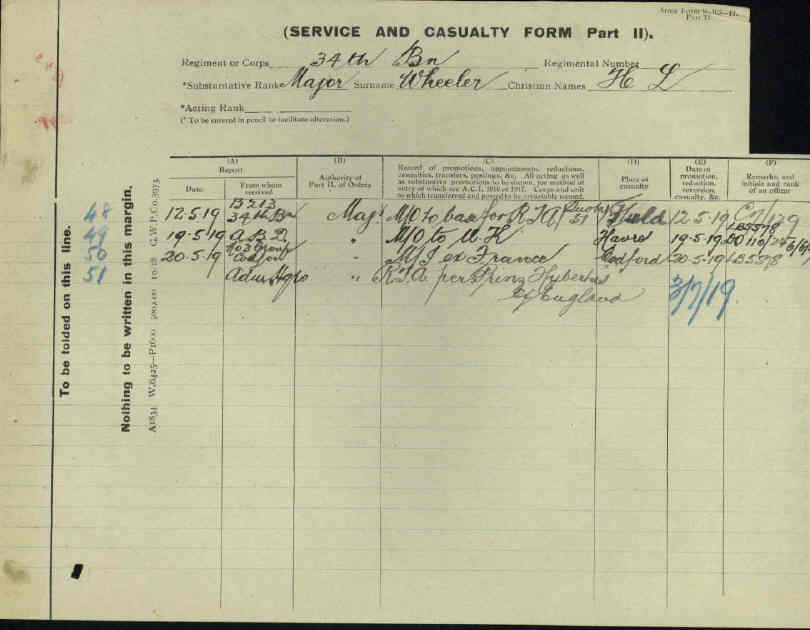 Army Form B. 103—II.
Part II
(SERVICE AND CASUALTY FORM Part II).
Regiment or Corps 34th Bn Regimental Number
*Substantive Rank Major Surname Wheeler Christian Names H L
*Acting Rank
(* To be entered in pencil to facilitate alteration.)
To be folded on this line.
Nothing to be written in this margin.
A1834 W.6425—P1600 10/18 G.W.P.Co. 3073
(A) (B) (C) (D) (E) (F)
Report
Date From whom received
Authority of Part II. of Orders
Record of promotions, appointments, reductions, casualties, transfers, postings, &c. All acting as well as substantive promotions to be shown, for method of entry of which see A.C.I. 1816 of 1917. Corps and unit to which transferred and posted to be invariably stated.
Place of casualty
Date of promotion, reduction, reversion, casualty, &c.
Remarks, and initials and rank of an officer
48 12.5.19 B213 34th Bn Maj. M/O to base for R.T.A. Quota 51 Field 12.5.19 C7/139
LB5578
49 19-5-19 A.B.D. " M/O to U.K. Havre 19-5-19 DO 110/24
50 20-5-19 No 3 Group Codford " M/I ex France Codford 20-5-19 LB5598
51 Adm Hqrs " R.T.A. per Prinz Hubertus
ex England 2/7/19